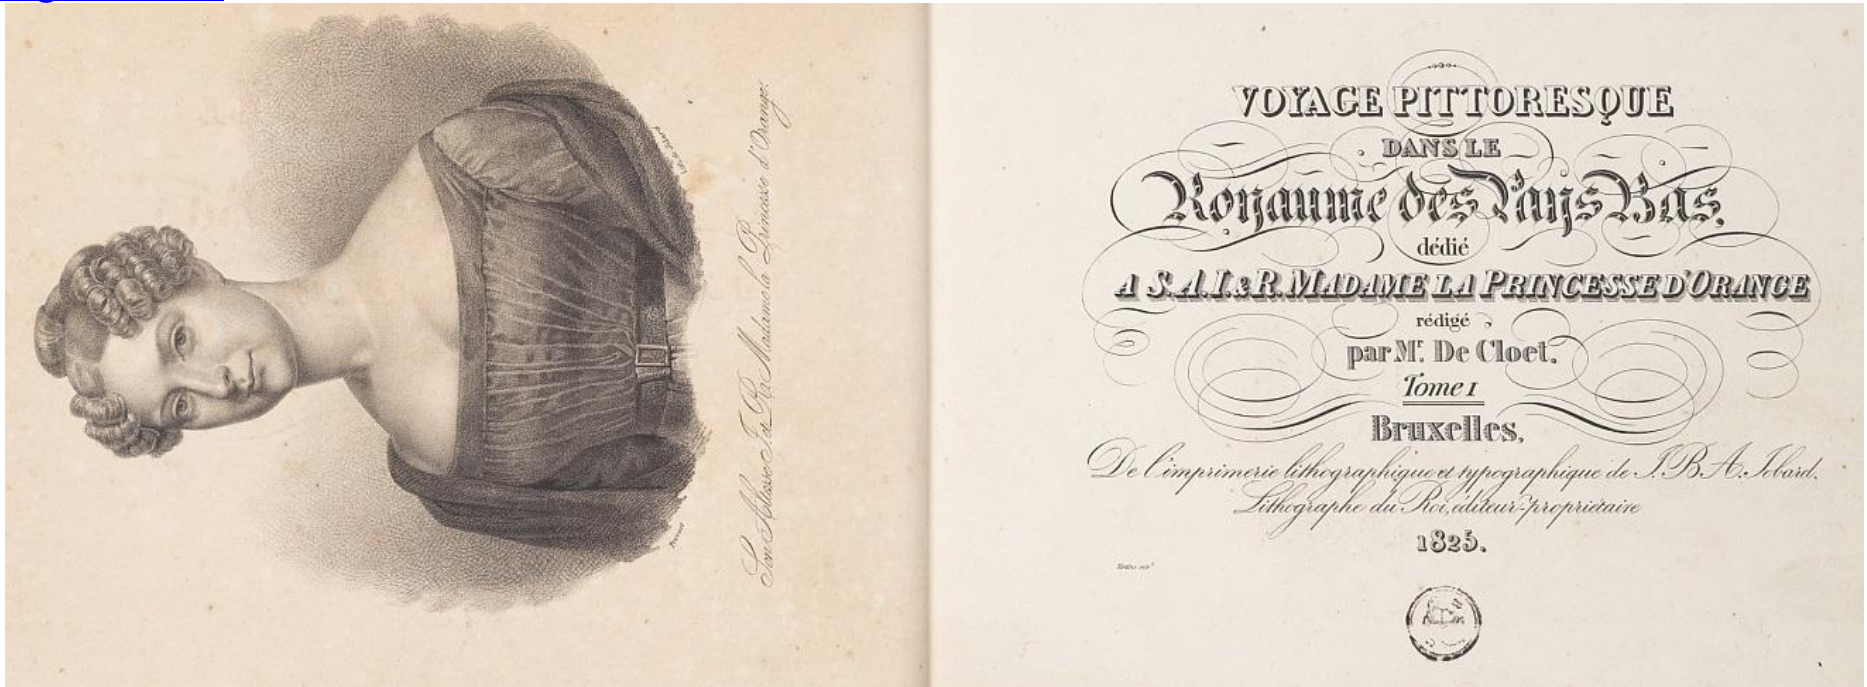 Lith. de Jobard
Son Altesse I. & R. Madame la Princesse d'Orange.
VOYAGE PITTORESQUE
DANS LE
Royaume des Pays Bas,
dédié
A S.A.I. & R. MADAME LA PRINCESSE D'ORANGE
rédigé
par Mr. De Cloet.
Tome I
Bruxelles,
De l'imprimerie lithographique et typographique de J. B. A. Jobard,
Lithographe du Roi, éditeur-propriétaire
1825.